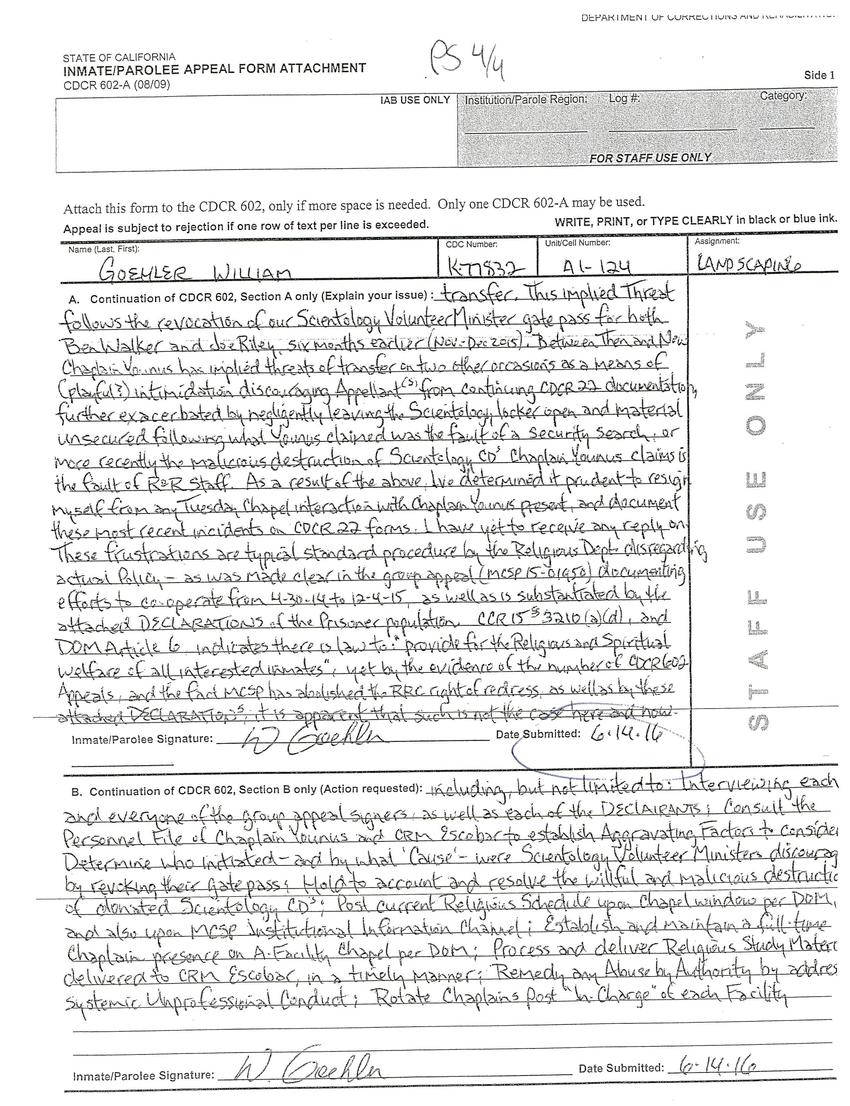 DEPARTMENT OF CORRECTIONS AND REHABILITATION
STATE OF CALIFORNIA
INMATE/PAROLEE APPEAL FORM ATTACHMENT
CDCR 602-A (08/09)
PS 4/4
Side 1
IAB USE ONLY
Institution/Parole Region:
Log #:
Category:
FOR STAFF USE ONLY
Attach this form to the CDCR 602, only if more space is needed. Only one CDCR 602-A may be used.
Appeal is subject to rejection if one row of text per line is exceeded.
WRITE, PRINT, or TYPE CLEARLY in black or blue ink.
Name (Last, First):
CDC Number:
Unit/Cell Number:
Assignment:
GOEHLER WILLIAM
K-77832
A1-124
LANDSCAPING
A. Continuation of CDCR 602, Section A only (Explain your issue): transfer. This implied Threat
follows the revocation of our Scientology Volunteer Minister gate pass for both
Ben Walker and Joe Riley, six months earlier (Nov-Dec 2015). Between Then and Now
Chaplain Younus has implied threats of transfer on two other occasions as a means of
(playful?) intimidation discouraging Appellant(s) from continuing CDCR 22 documentation,
further exacerbated by negligently leaving the Scientology locker open and material
unsecured following what Younus claimed was the fault of a security search, or
more recently the malicious destruction of Scientology CDs Chaplain Younus claims is
the fault of R&R Staff. As a result of the above, Ive determined it prudent to resign
myself from any Tuesday Chapel interaction with Chaplain Younus present, and document
these most recent incidents on CDCR 22 forms. I have yet to receive any reply on
These frustrations are typical standard procedure by the Religious Dept disregarding
actual Policy - as was made clear in the group appeal (MCSP 15-01950) documenting
efforts to co-operate from 4-30-14 to 12-4-15, as well as is substantiated by the
attached DECLARATIONS of the Prisoner population. CCR 15 § 3210 (a)(d), and
DOM Article 6, indicates there is law to: "provide for the Religious and Spiritual
welfare of all interested inmates", yet by the evidence of the number of CDCR 602
Appeals, and the fact MCSP has abolished the RRC right of redress, as well as by these
attached DECLARATIONS, it is apparent that such is not the case here and now.
Inmate/Parolee Signature: W Goehler
Date Submitted: 6-14-16
STAFF USE ONLY
B. Continuation of CDCR 602, Section B only (Action requested): including, but not limited to: Interviewing each
and everyone of the group appeal signers, as well as each of the DECLAIRANTS; Consult the
Personnel File of Chaplain Younus and CRM Escobar to establish Aggravating Factors to consider
Determine who initiated - and by what 'Cause' - were Scientology Volunteer Ministers discourag
by revoking their gate pass; Hold to account and resolve the willful and malicious destructio
of donated Scientology CDs; Post current Religious Schedule upon Chapel window per DOM,
and also upon MCSP Institutional Information Channel; Establish and maintain a full-time
Chaplain presence on A-Facility Chapel per DOM; Process and deliver Religious Study Materi
delivered to CRM Escobar, in a timely manner; Remedy any Abuse by Authority by addres
systemic Unprofessional Conduct; Rotate Chaplains Post "In Charge" of each Facility
Inmate/Parolee Signature: W. Goehler
Date Submitted: 6-14-16